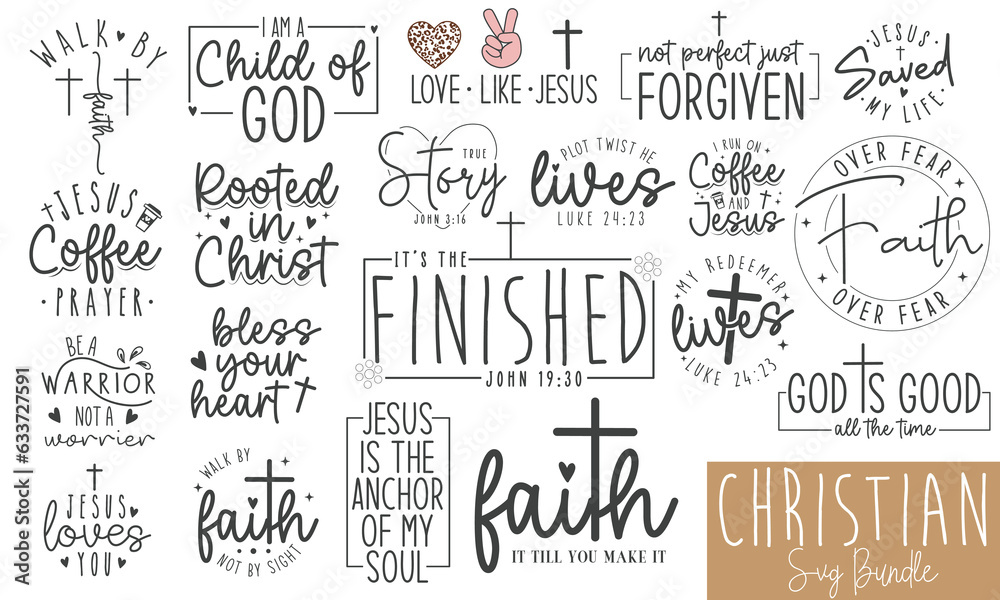 WALK BY
faith
I AM A
Child of
GOD
LOVE • LIKE • JESUS
not perfect just
FORGIVEN
JESUS
Saved
MY LIFE
JESUS
Coffee
• PRAYER •
Rooted
in
Christ
TRUE
Story
JOHN 3:16
PLOT TWIST HE
lives
LUKE 24:23
I RUN ON
Coffee
AND
Jesus
OVER FEAR
Faith
OVER FEAR
IT'S THE
FINISHED
JOHN 19:30
MY REDEEMER
lives
LUKE 24:23
BE A
WARRIOR
NOT A
worrier
bless
your
heart
GOD IS GOOD
all the time
JESUS
loves
YOU
WALK BY
faith
NOT BY SIGHT
JESUS
IS THE
ANCHOR
OF MY
SOUL
faith
IT TILL YOU MAKE IT
CHRISTIAN
Svg Bundle
Adobe Stock | #633727591